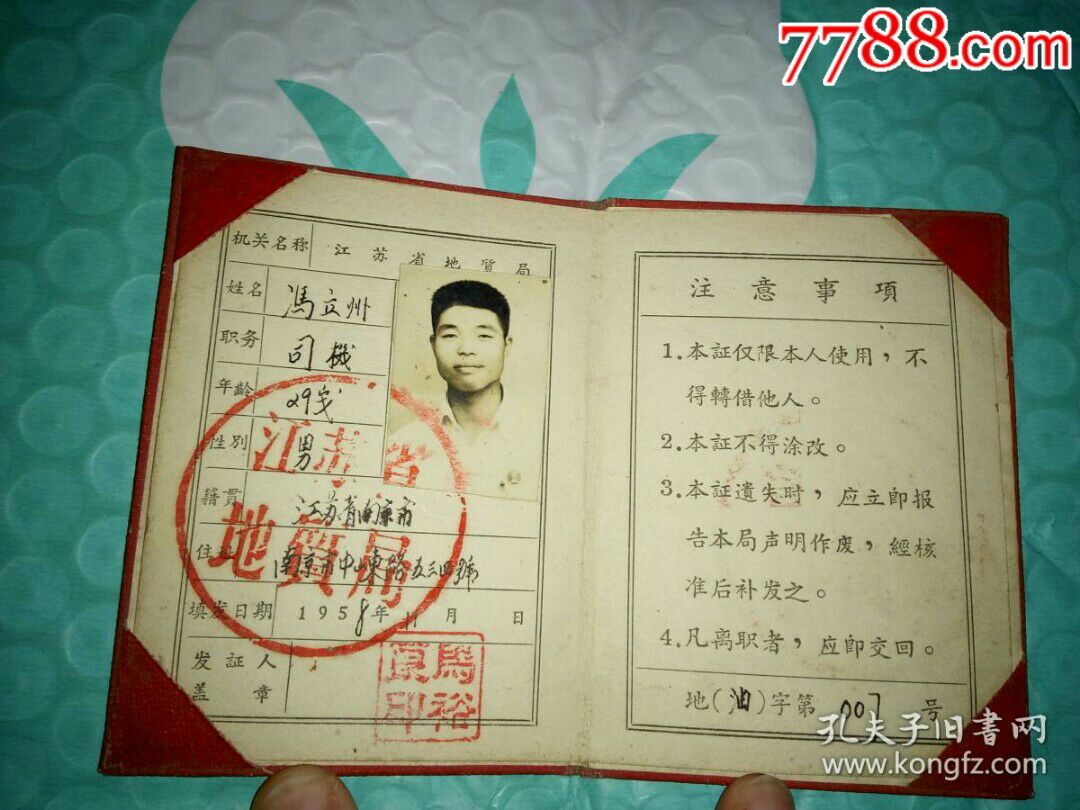 7788.com
机关名称 江苏省地質局
姓名 馮立州
职务 司機
年齡 29岁
性别 男
籍貫 江苏省南京市
住址 南京市中山東路五三四號
填发日期 1958年11月 日
发証人
盖章
江苏省
地質局
馬裕
印
注意事項
1.本証仅限本人使用，不
得轉借他人。
2.本証不得涂改。
3.本証遺失时，应立即报
告本局声明作废，經核
准后补发之。
4.凡离职者，应即交回。
地(油)字第007号
孔夫子旧書网
www.kongfz.com